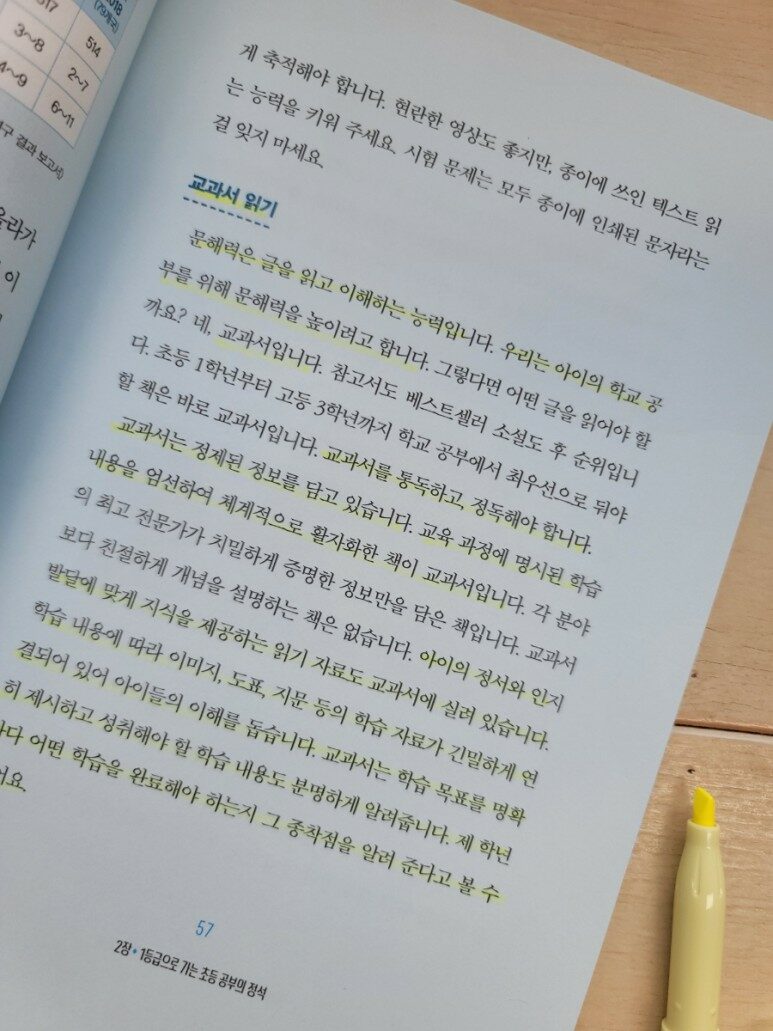 018
(79개국)
514
3~8
2~7
4~9
6~11
구 결과 보고서)
올라가
이
게 축적해야 합니다. 현란한 영상도 좋지만, 종이에 쓰인 텍스트 읽
는 능력을 키워 주세요. 시험 문제는 모두 종이에 인쇄된 문자라는
걸 잊지 마세요.
교과서 읽기
문해력은 글을 읽고 이해하는 능력입니다. 우리는 아이의 학교 공
부를 위해 문해력을 높이려고 합니다. 그렇다면 어떤 글을 읽어야 할
까요? 네, 교과서입니다. 참고서도 베스트셀러 소설도 후 순위입니
다. 초등 1학년부터 고등 3학년까지 학교 공부에서 최우선으로 둬야
할 책은 바로 교과서입니다. 교과서를 통독하고, 정독해야 합니다.
교과서는 정제된 정보를 담고 있습니다. 교육 과정에 명시된 학습
내용을 엄선하여 체계적으로 활자화한 책이 교과서입니다. 각 분야
의 최고 전문가가 치밀하게 증명한 정보만을 담은 책입니다. 교과서
보다 친절하게 개념을 설명하는 책은 없습니다. 아이의 정서와 인지
발달에 맞게 지식을 제공하는 읽기 자료도 교과서에 실려 있습니다.
학습 내용에 따라 이미지, 도표, 지문 등의 학습 자료가 긴밀하게 연
결되어 있어 아이들의 이해를 돕습니다. 교과서는 학습 목표를 명확
히 제시하고 성취해야 할 학습 내용도 분명하게 알려줍니다. 제 학년
마다 어떤 학습을 완료해야 하는지 그 종착점을 알려 준다고 볼 수
어요.
57
2장 • 1등급으로 가는 초등 공부의 정석